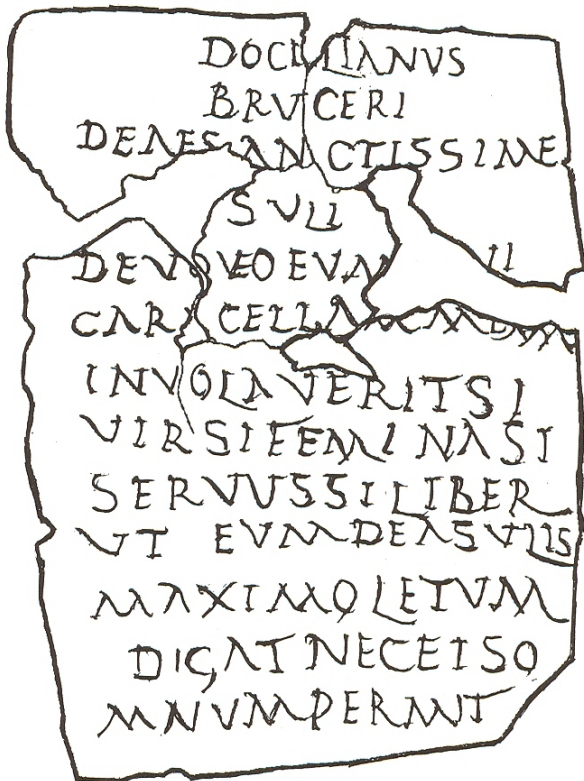 DOCILIANVS
BRVCERI
DEAE SANCTISSIME
SVLI
DEVOVEO EVM
CARACELLAM
INVOLAVERIT SI
VIR SI FEMINA SI
SERVVS SI LIBER
VT EVM DEA SVLIS
MAXIMO LETVM
DIGAT NEC EI SO
MNVM PERMIT